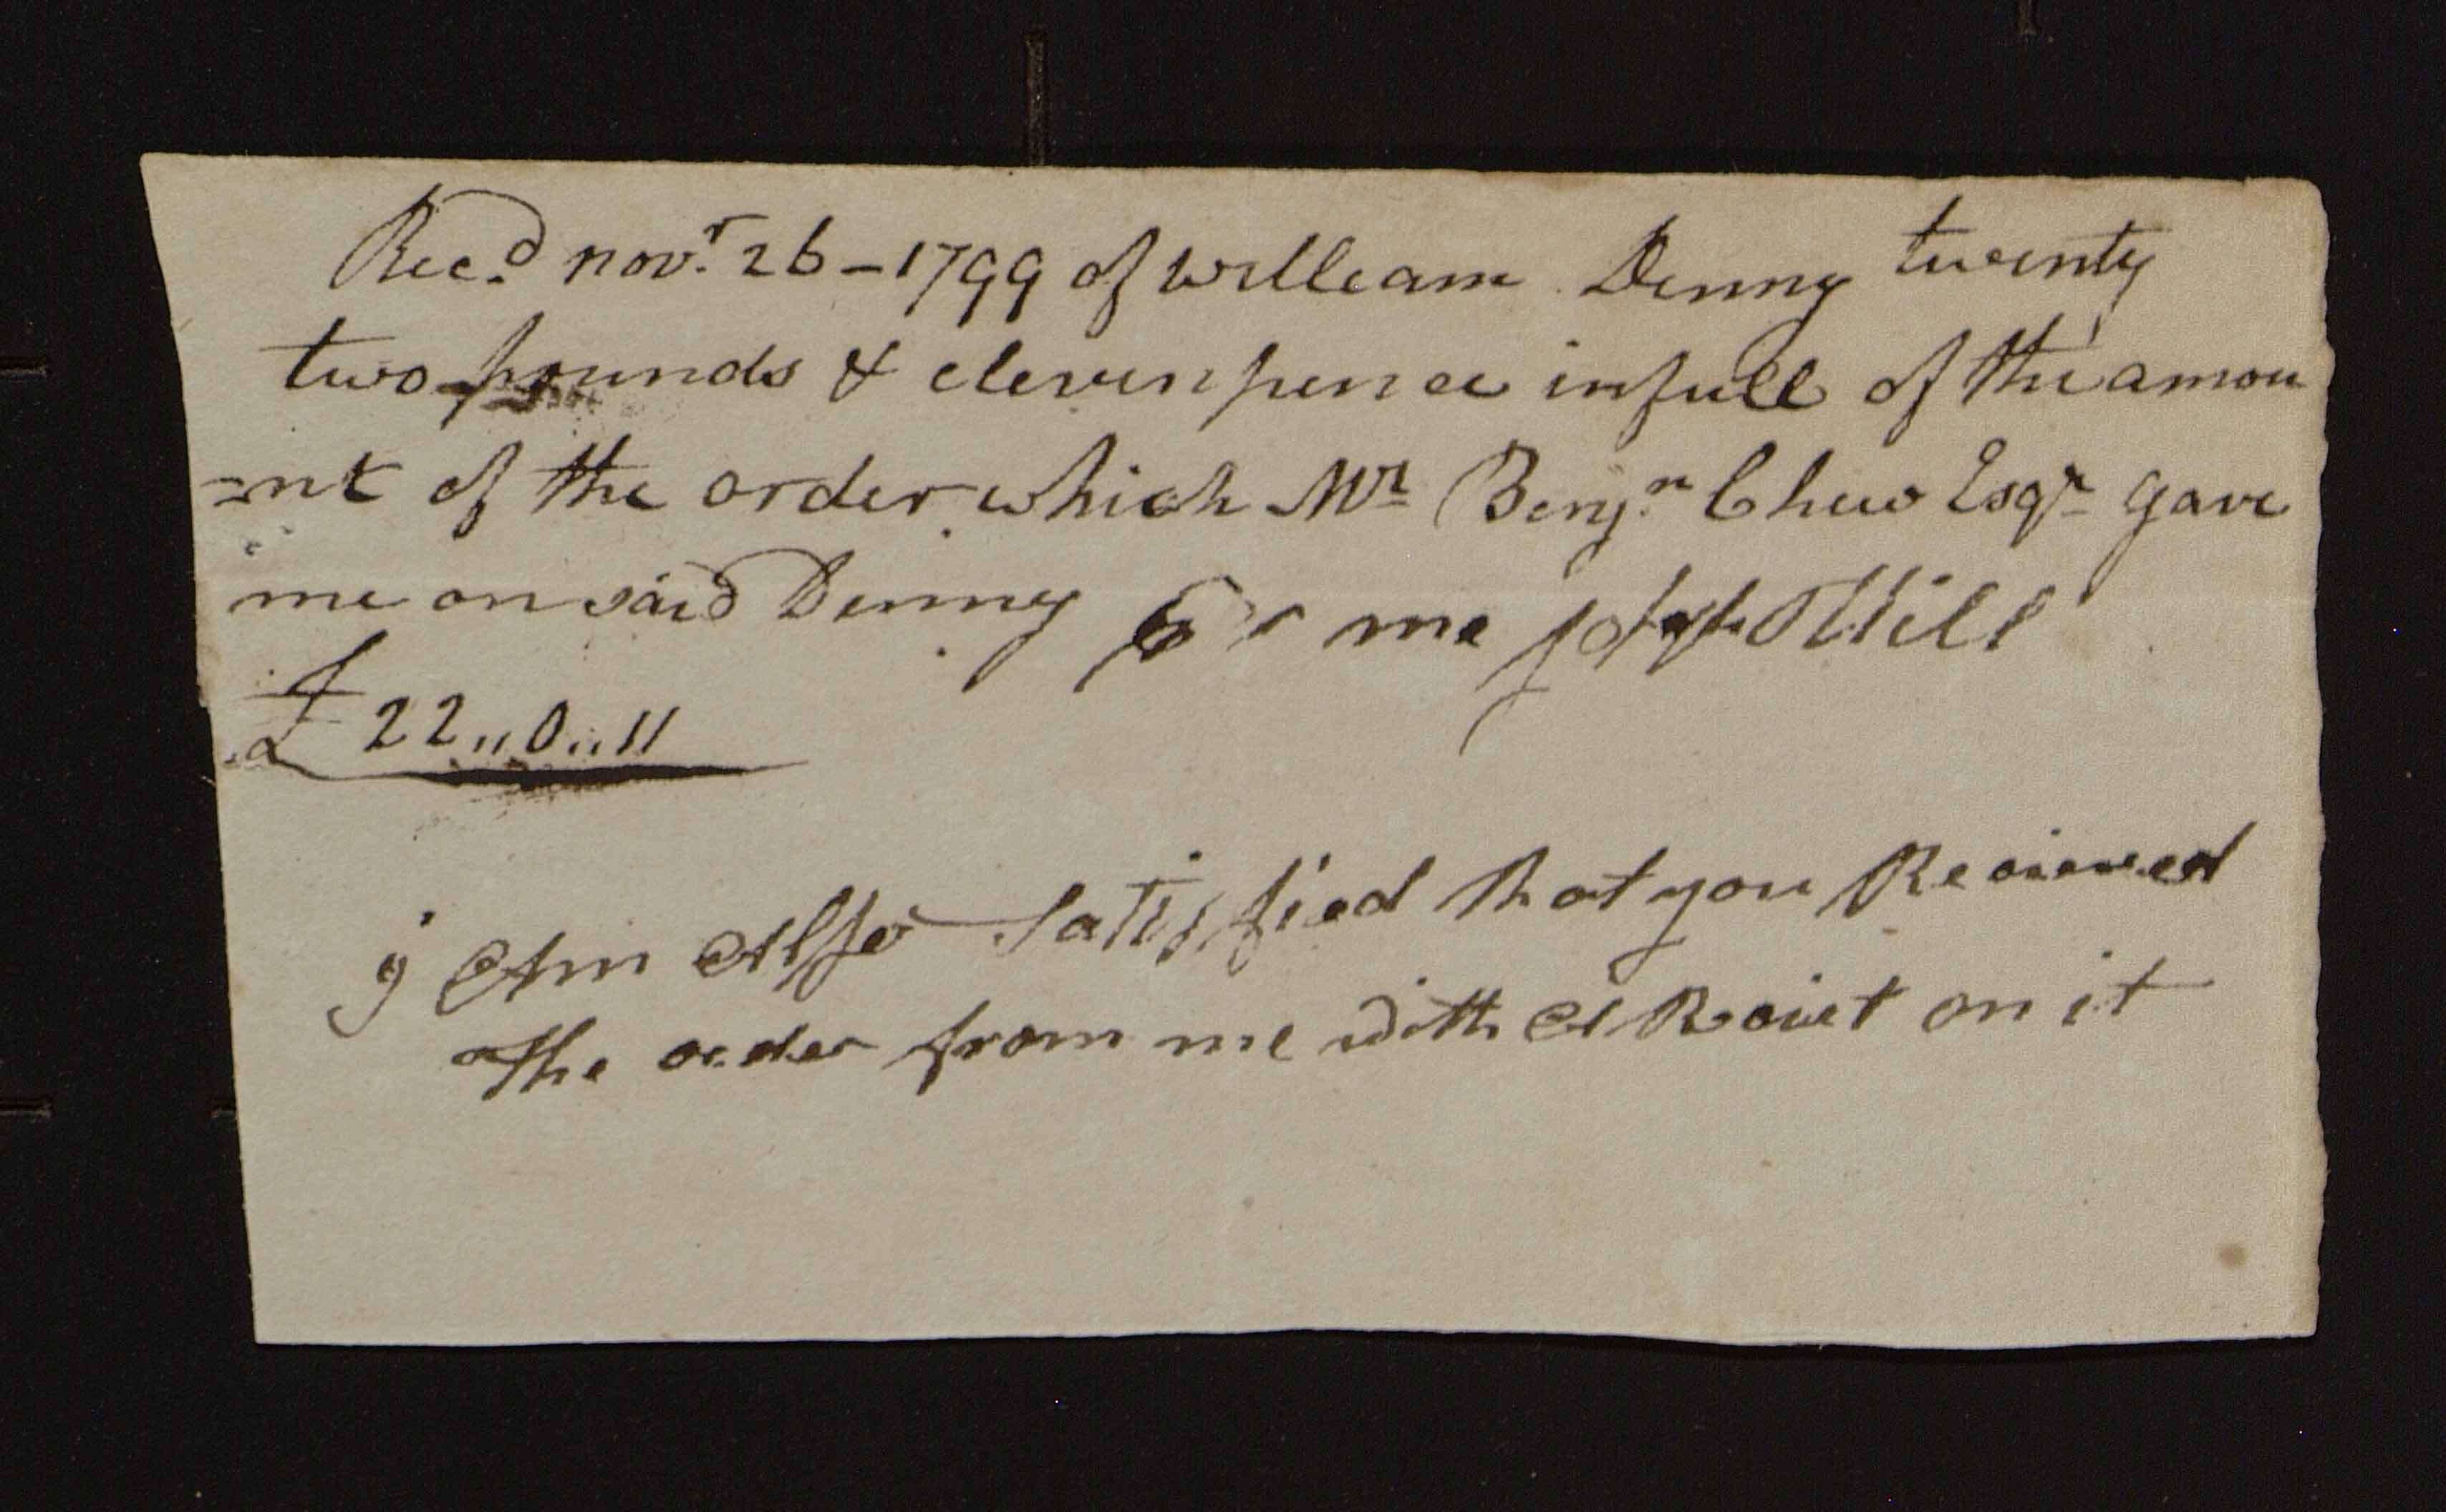 Rec.d nov.r 26 - 1799 of William Denny twenty
two pounds & eleven pence in full of the amou
=nt of the order which Mr Benj.n Chew Esqr gave
me on said Denny for me Joseph Hill
£ 22,,0,,11
j Am Allso Satisfied that you Recieved
the order from me with A Reciet on it